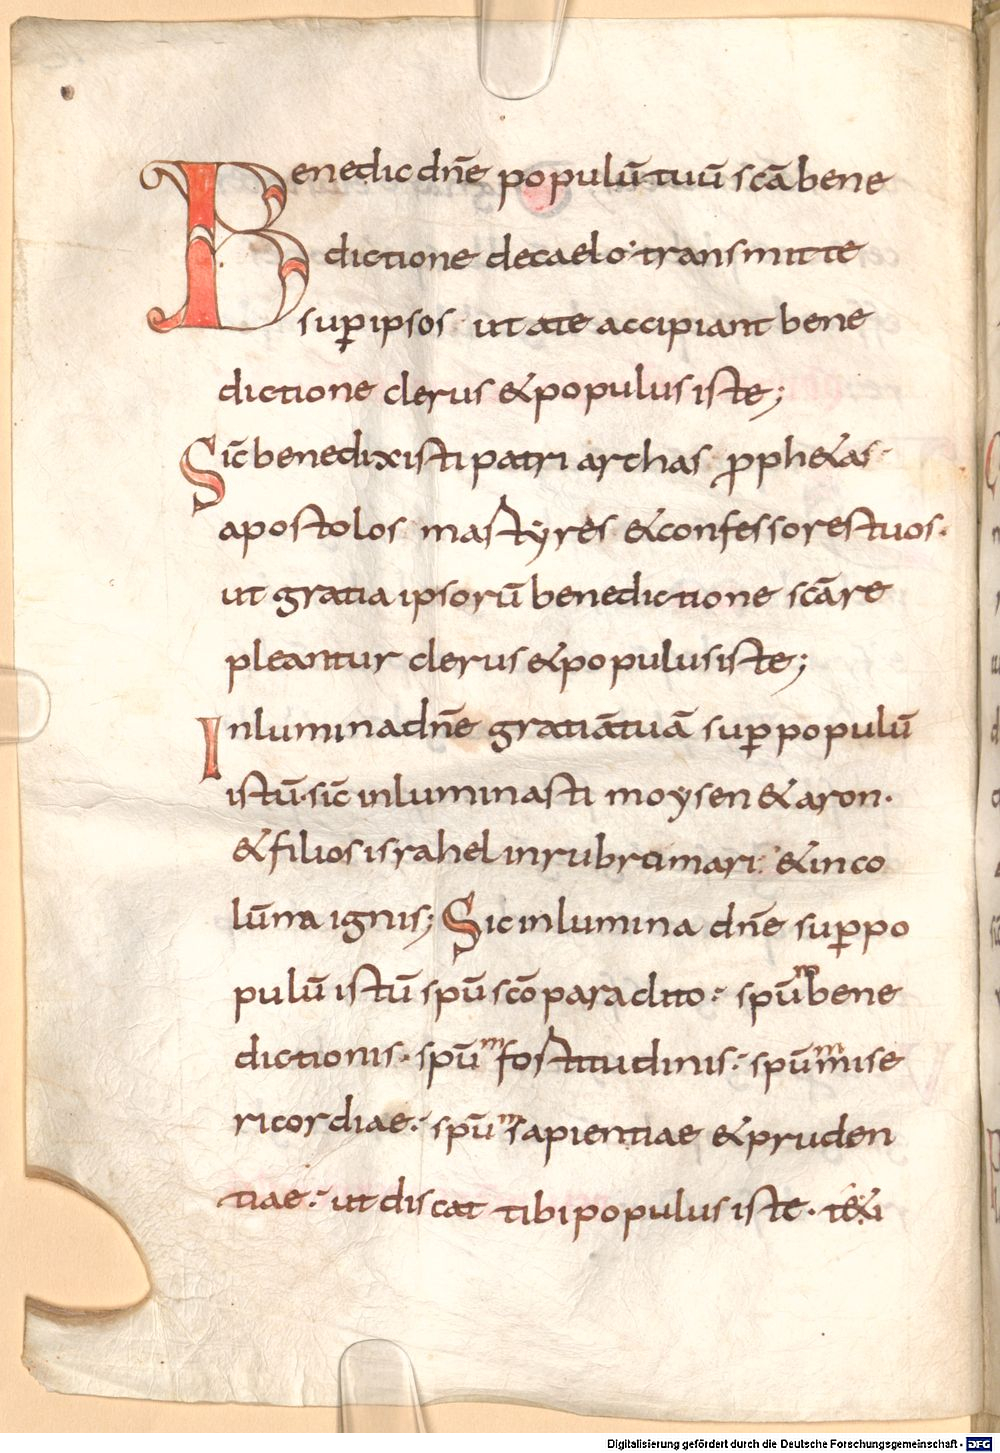 Benedic dn̄e populū tuū scā bene
dictione de caelo· transmitte
sup̱ ipsos· ut a te accipiant bene
dictione clerus & populus iste;
Sic̄ benedixisti patri archas p̱ph&as·
apostolos martyres & confessores tuos·
ut gratia ipsorū benedictione scā re
pleantur clerus & populus iste;
Inlumina dn̄e gratiā tuā sup̱ populū
istū· sic̄ inluminasti moysen & aron·
& filios israhel in rubro mari· & in co
lūna ignis; Sic inlumina dn̄e sup̱ po
pulū istū spū scō paraclito· spūm bene
dictionis· spūm fortitudinis· spūm mise
ricordiae· spūm sapientiae & pruden
tiae· ut discat tibi populus iste· t&
Digitalisierung gefördert durch die Deutsche Forschungsgemeinschaft - DFG